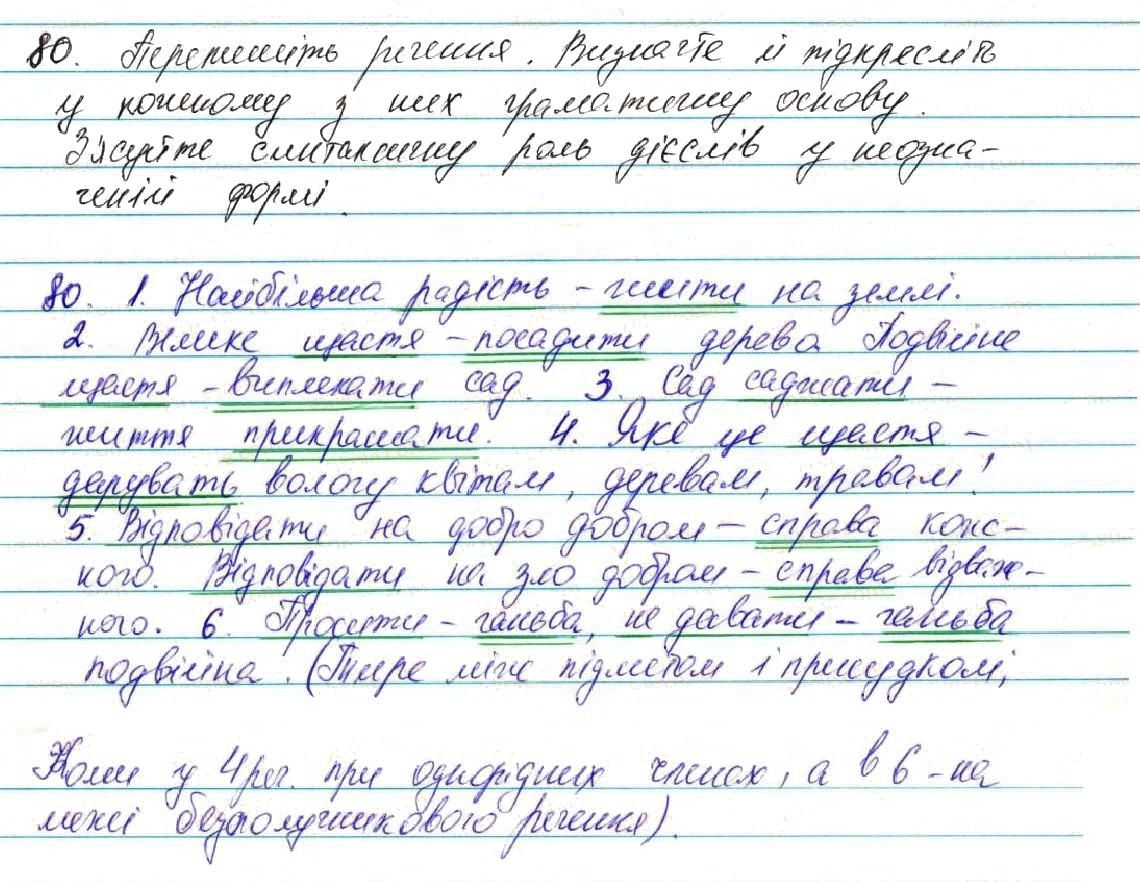 80. Перепишіть речення. Визначте й підкресліть
у кожному з них граматичну основу.
З'ясуйте синтаксичну роль дієслів у неозна-
ченій формі.
80. 1. Найбільша радість - жити на землі.
2. Велике щастя - посадити дерево. Подвійне
щастя - виплекати сад. 3. Сад саджати -
життя прикрашати. 4. Яке це щастя -
дарувать вологу квітам, деревам, травам!
5. Відповідати на добро добром - справа кож-
ного. Відповідати на зло добром - справа відваж-
ного. 6. Просити - ганьба, не давати - ганьба
подвійна. (Тире між підметом і присудком;
Коми у 4 реч. при однорідних членах, а в 6 - на
межі безсполучникового речення).